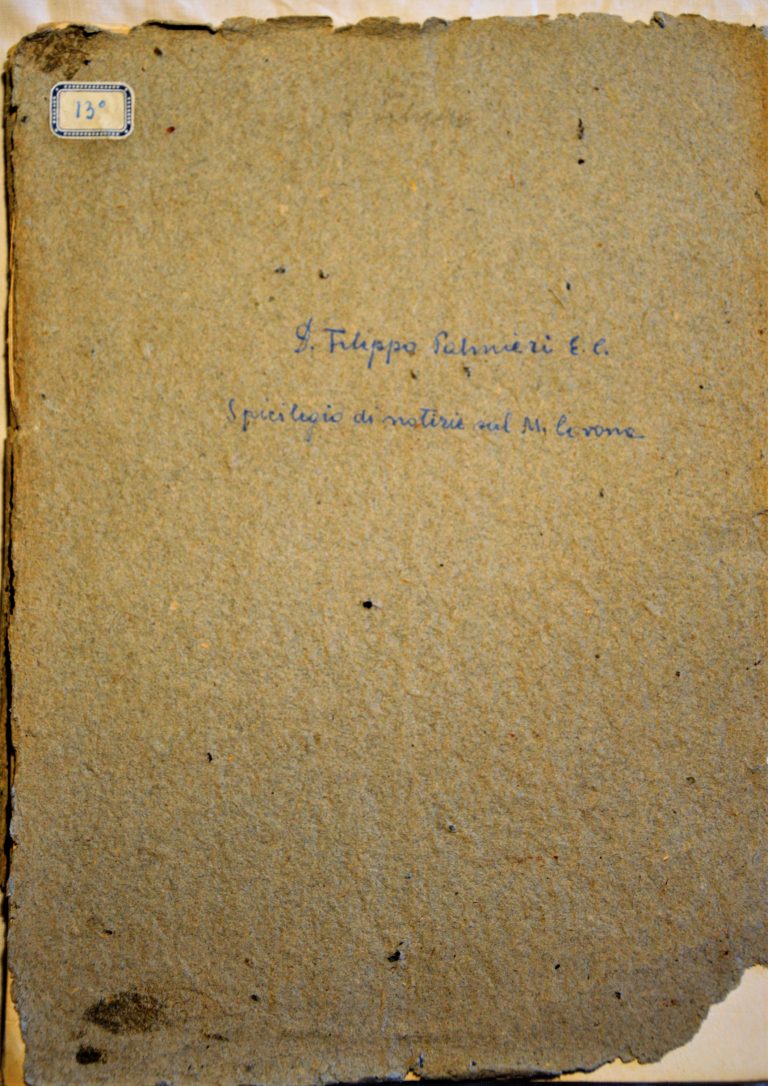 13°
D. Filippo Palmieri E. C.
Spicilegio di notizie sul M. Corona